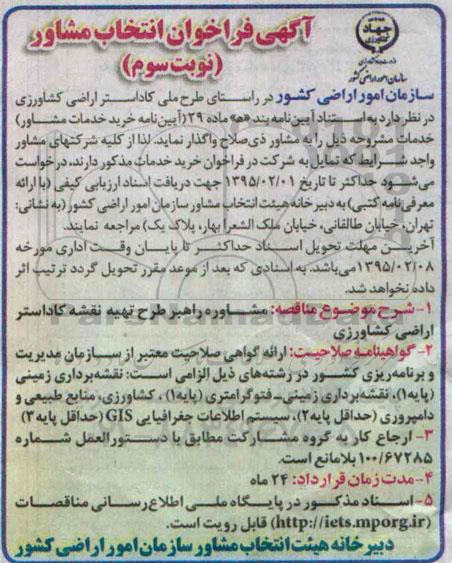 آگهی فراخوان انتخاب مشاور
(نوبت سوم)
جهاد
کشاورزی
سازمان امور اراضی کشور
سازمان امور اراضی کشور در راستای طرح ملی کاداستر اراضی کشاورزی
در نظر دارد به استناد آیین‌نامه بند «هـ» ماده ۲۹ (آیین‌نامه خرید خدمات مشاور)
خدمات مشروحه ذیل را به مشاور ذی‌صلاح واگذار نماید. لذا از کلیه شرکتهای مشاور
واجد شرایط که تمایل به شرکت در فراخوان خرید خدمات مذکور دارند، درخواست
می‌شود حداکثر تا تاریخ ۱۳۹۵/۰۲/۰۱ جهت دریافت اسناد ارزیابی کیفی (با ارائه
معرفی‌نامه کتبی) به دبیرخانه هیئت انتخاب مشاور سازمان امور اراضی کشور (به نشانی:
تهران، خیابان طالقانی، خیابان ملک الشعرا بهار، پلاک یک) مراجعه نمایند.
آخرین مهلت تحویل اسناد حداکثر تا پایان وقت اداری مورخه
۱۳۹۵/۰۲/۰۸ می‌باشد. به اسنادی که بعد از موعد مقرر تحویل گردد ترتیب اثر
داده نخواهد شد.
۱- شرح موضوع مناقصه: مشاوره راهبر طرح تهیه نقشه کاداستر
اراضی کشاورزی
۲- گواهینامه صلاحیت: ارائه گواهی صلاحیت معتبر از سازمان مدیریت
و برنامه‌ریزی کشور در رشته‌های ذیل الزامی است: نقشه‌برداری زمینی
(پایه۱)، نقشه‌برداری زمینی-فتوگرامتری (پایه۱)، کشاورزی، منابع طبیعی و
دامپروری (حداقل پایه۲)، سیستم اطلاعات جغرافیایی GIS (حداقل پایه۳)
۳- ارجاع کار به گروه مشارکت مطابق با دستورالعمل شماره
۱۰۰/۶۷۲۸۵ بلامانع است.
۴- مدت زمان قرارداد: ۲۴ ماه
۵- اسناد مذکور در پایگاه ملی اطلاع‌رسانی مناقصات
(http://iets.mporg.ir) قابل رویت است.
دبیرخانه هیئت انتخاب مشاور سازمان امور اراضی کشور